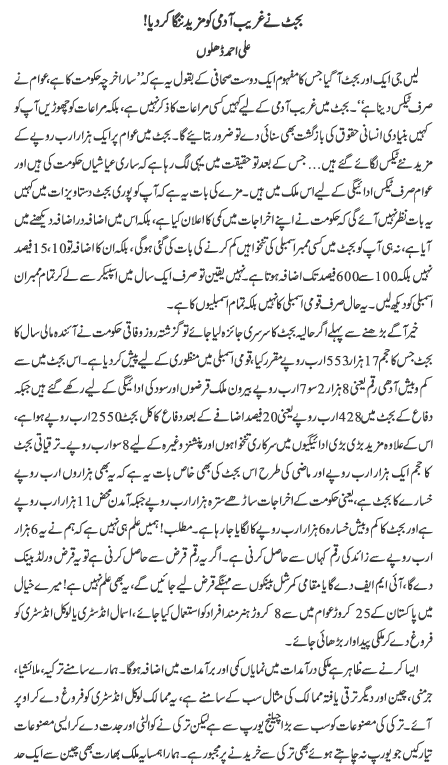 بجٹ نے غریب آدمی کو مزید ننگا کر دیا!
علی احمد ڈھلوں
لیں جی ایک اور بجٹ آگیا جس کا مفہوم ایک دوست صحافی کے بقول یہ ہے کہ ’’سارا خرچہ حکومت کا ہے، عوام نے
صرف ٹیکس دینا ہے‘‘۔ بجٹ میں غریب آدمی کے لیے کہیں کسی مراعات کا ذکر نہیں ہے، بلکہ مراعات کو چھوڑیں آپ کو
کہیں بنیادی انسانی حقوق کی بازگشت بھی سنائی دے تو ضرور بتائیے گا۔ بجٹ میں عوام پر ایک ہزار ارب روپے کے
مزید نئے ٹیکس لگائے گئے ہیں... جس کے بعد تو حقیقت میں یہی لگ رہا ہے کہ ساری عیاشیاں حکومت کی ہیں اور
عوام صرف ٹیکس ادائیگی کے لیے اس ملک میں ہیں۔ مزے کی بات یہ ہے کہ آپ کو پوری بجٹ دستاویزات میں کہیں
یہ بات نظر نہیں آئے گی کہ حکومت نے اپنے اخراجات میں کمی کا اعلان کیا ہے، بلکہ اس میں اضافہ در اضافہ دیکھنے میں
آیا ہے، نہ ہی آپ کو بجٹ میں کسی ممبر اسمبلی کی تنخواہیں کم کرنے کی بات کی گئی ہوگی، بلکہ ان کا اضافہ تو 10، 15 فیصد
نہیں بلکہ 100 سے 600 فیصد تک اضافہ ہوتا ہے۔ نہیں یقین تو صرف ایک سال میں اسپیکر سے لے کر تمام ممبران
اسمبلی کو دیکھ لیں۔ یہ حال صرف قومی اسمبلی کا نہیں بلکہ تمام اسمبلیوں کا ہے۔
خیر آگے بڑھنے سے پہلے اگر حالیہ بجٹ کا سرسری جائزہ لیا جائے تو گزشتہ روز وفاقی حکومت نے آئندہ مالی سال کا
بجٹ جس کا حجم 17 ہزار 553 ارب روپے مقرر کیا، قومی اسمبلی میں منظوری کے لیے پیش کر دیا ہے۔ اس بجٹ میں سے
کم و بیش آدھی رقم یعنی 8 ہزار 2 سو 7 ارب روپے بیرون ملک قرضوں اور سود کی ادائیگی کے لیے رکھے گئے ہیں جبکہ
دفاع کے بجٹ میں 428 ارب روپے یعنی 20 فیصد اضافے کے بعد دفاع کا کل بجٹ 2550 ارب روپے ہوا ہے،
اس کے علاوہ مزید بڑی بڑی ادائیگیوں میں سرکاری تنخواہوں اور پنشنز وغیرہ کے لیے 8 سو ارب روپے۔ ترقیاتی بجٹ
کا حجم ایک ہزار ارب روپے اور ماضی کی طرح اس بجٹ کی بھی خاص بات یہ ہے کہ یہ بھی ہزاروں ارب روپے
خسارے کا بجٹ ہے، یعنی حکومت کے اخراجات ساڑھے سترہ ہزار ارب روپے جبکہ آمدن محض 11 ہزار ارب روپے
ہے اور بجٹ کا کم و بیش خسارہ 6 ہزار ارب روپے کا لگایا جا رہا ہے۔ مطلب! ہمیں علم ہی نہیں ہے کہ ہم نے یہ 6 ہزار
ارب روپے سے زائد کی رقم کہاں سے حاصل کرنی ہے۔ اگر یہ رقم قرض سے حاصل کرنی ہے تو یہ قرض ورلڈ بینک
دے گا، آئی ایم ایف دے گا یا مقامی کمرشل بینکوں سے مہنگے قرض لیے جائیں گے، یہ بھی علم نہیں ہے! میرے خیال
میں پاکستان کے 25 کروڑ عوام میں سے 8 کروڑ ہنرمند افراد کو استعمال کیا جائے، اسمال انڈسٹری یا لوکل انڈسٹری کو
فروغ دے کر ملکی پیداوار بڑھائی جائے۔
ایسا کرنے سے ظاہر ہے ملکی درآمدات میں نمایاں کمی اور برآمدات میں اضافہ ہوگا۔ ہمارے سامنے ترکیہ، ملائشیا،
جرمنی، چین اور دیگر ترقی یافتہ ممالک کی مثال سب کے سامنے ہے، یہ ممالک لوکل انڈسٹری کو فروغ دے کر اوپر
آئے۔ ترکی کی مصنوعات کو سب سے بڑا چیلنج یورپ سے ہے لیکن ترکی نے کوالٹی اور جدت دے کر ایسی مصنوعات
تیار کیں جو یورپ نہ چاہتے ہوئے بھی ترکی سے خریدنے پر مجبور ہے۔ ہمارا ہمسایہ ملک بھارت بھی چین سے ایک حد